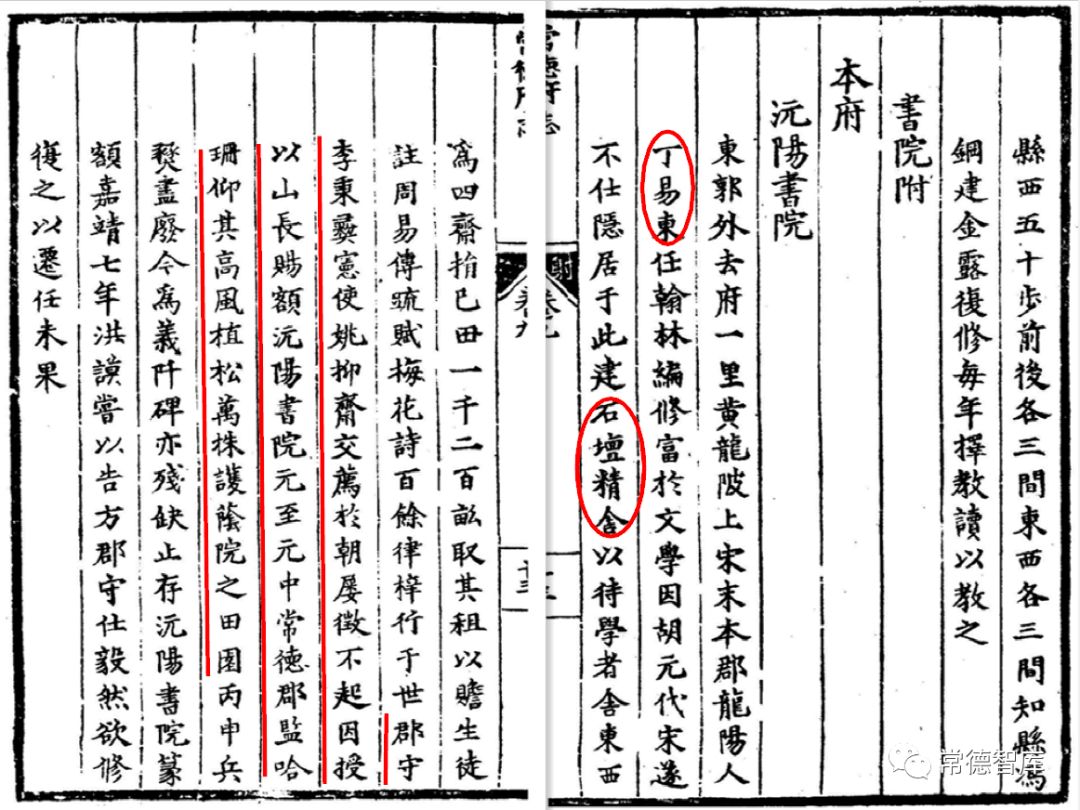 縣西五十步前後各三間東西各三間知縣馮
鋼建金露復修每年擇教讀以教之
書院附
本府
沅陽書院
東郭外去府一里黃龍陂上宋末本郡龍陽人
丁易東任翰林編修富於文學因胡元代宋遂
不仕隱居于此建石壇精舍以待學者舍東西
常德府志
卷九
十三
爲四齋捐己田一千二百畝取其租以贍生徒
註周易傳疏賦梅花詩百餘律梓行于世郡守
李秉彞憲使姚抑齋交薦於朝屡徵不起因授
以山長賜額沅陽書院元至元中常德郡監哈
珊仰其高風植松萬株護蔭院之田園丙申兵
燹盡廢今爲義阡碑亦殘缺止存沅陽書院篆
額嘉靖七年洪謨嘗以告方郡守仕毅然欲修
復之以遷任未果
常德智库